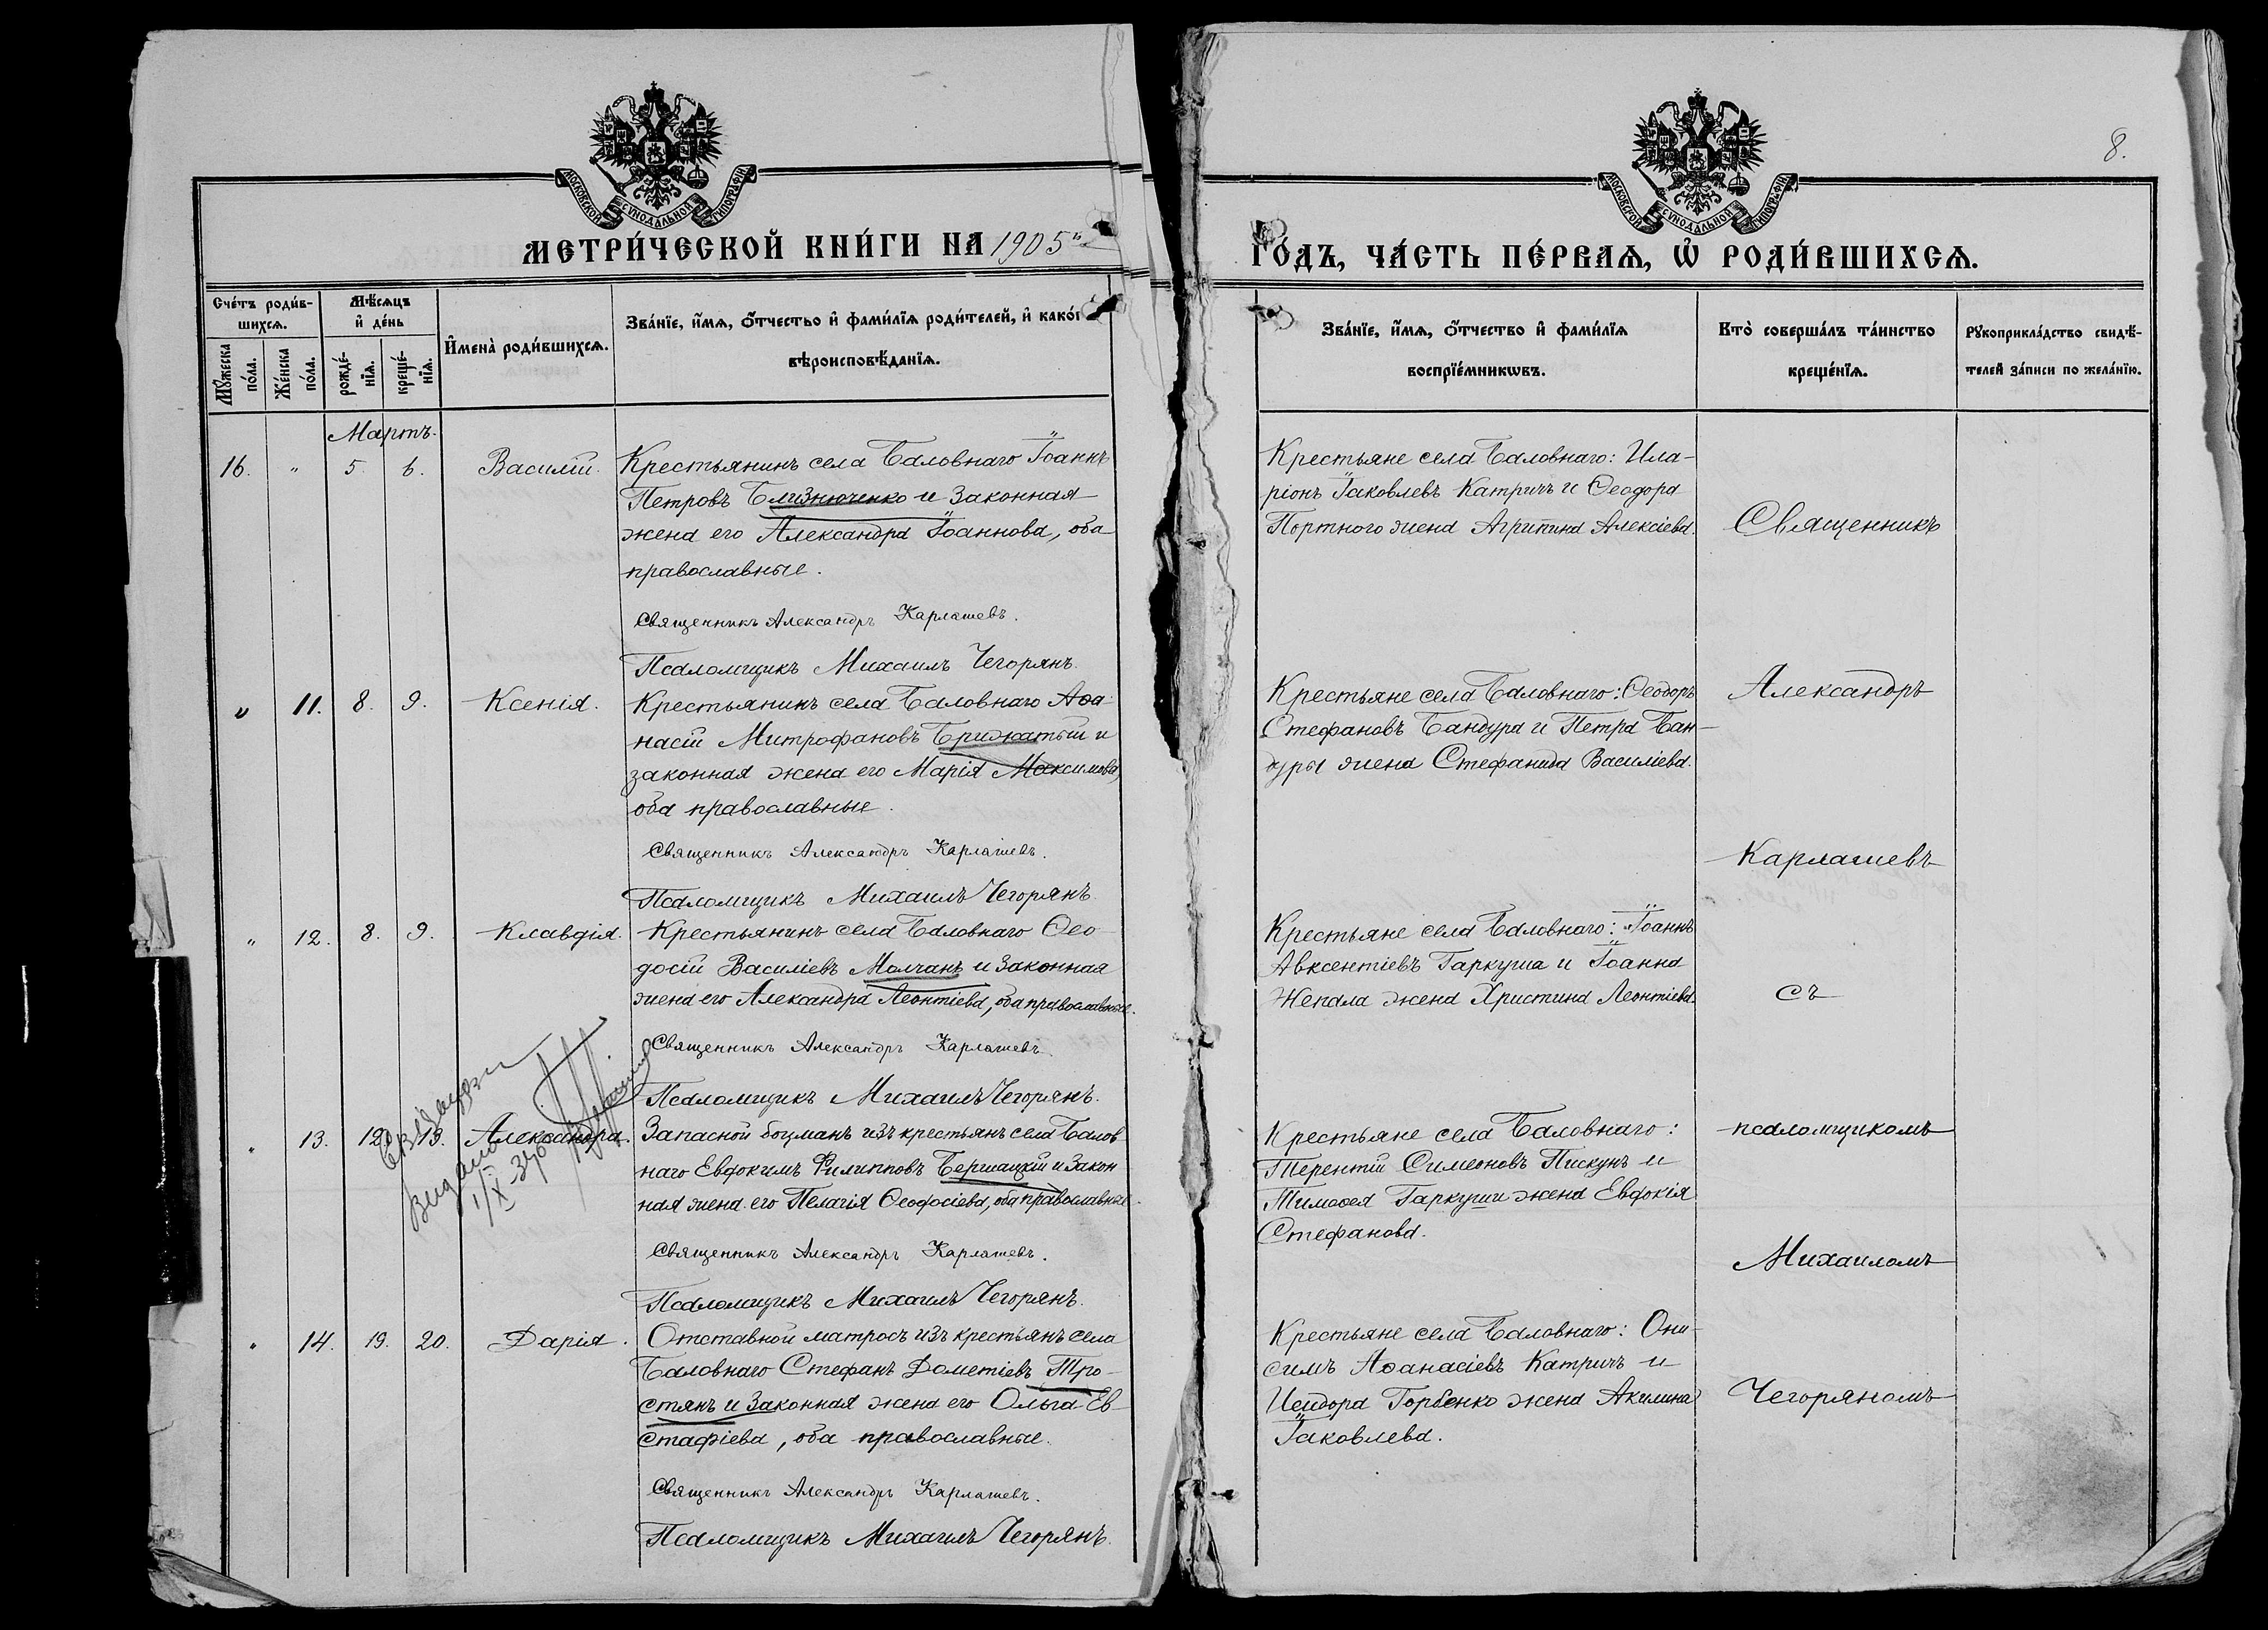 8.
МОСКОВСКОЙ СѴНОДАЛЬНОЙ ТИПОГРАФІИ
МОСКОВСКОЙ СѴНОДАЛЬНОЙ ТИПОГРАФІИ
МЕТРИ́ЧЕСКОЙ КНИ́ГИ НА 1905"
ГО́ДЪ, ЧА́СТЬ ПЕ́РВАѦ, Ѡ҆ РОДИ́ВШИХСѦ.
Сче́тъ роди́в-
шихсѧ.
Мꙋ́жеска
по́ла.
Же́нска
по́ла.
Мѣ́сѧцъ
и҆ де́нь
рожде́-
нїѧ.
креще́-
нїѧ.
И҆мена̀ роди́вшихсѧ.
Зва́нїе, и҆́мѧ, ѻ҆́тчестьо и҆ фами́лїѧ роди́телей, и҆ како́г
вѣроисповѣ́данїѧ.
Зва́нїе, и҆́мѧ, ѻ҆́тчество и҆ фами́лїѧ
воспрїе́мникѡвъ.
Кто̀ соверша́лъ та́инство
креще́нїѧ.
Рꙋкоприкла́дство свидѣ́-
телей за́писи по жела́нїю.
Мартъ.
16. " 5. 6. Василій.
Крестьянинъ села Баловнаго Іоаннъ
Петровъ Близнюченко и законная
жена его Александра Іоаннова, оба
православные.
Священникъ Александръ Карлашевъ.
Псаломщикъ Михаилъ Чегорянъ.
Крестьяне села Баловнаго: Ила-
ріонъ Іаковлевъ Катричъ и Ѳеодора
Портного жена Агрипина Алексіева.
Священникъ
" 11. 8. 9. Ксенія.
Крестьянинъ села Баловнаго Аѳа-
насій Митрофановъ Брижатый и
законная жена его Марія Максимова,
оба православные.
Священникъ Александръ Карлашевъ.
Псаломщикъ Михаилъ Чегорянъ.
Крестьяне села Баловнаго: Ѳеодоръ
Стефановъ Бандура и Петра Бан-
дуры жена Стефанида Василіева.
Александръ
Карлашевъ
" 12. 8. 9. Клавдія.
Крестьянинъ села Баловнаго Ѳео-
досій Василіевъ Молчанъ и законная
жена его Александра Леонтіева, оба православные.
Священникъ Александръ Карлашевъ.
Псаломщикъ Михаилъ Чегорянъ.
Крестьяне села Баловнаго: Іоаннъ
Авксентіевъ Гаркуша и Іоанна
Жепала жена Христина Леонтіева.
съ
Видано
1/X-376
" 13. 12. 13. Александра.
Запасной боцманъ изъ крестьянъ села Балов
наго Евдокимъ Филипповъ Бершацкій и закон
ная жена его Пелагія Ѳеодосіева, оба православные.
Священникъ Александръ Карлашевъ.
Псаломщикъ Михаилъ Чегорянъ.
Крестьяне села Баловнаго:
Терентій Симеоновъ Пискунъ и
Тимоѳея Гаркуши жена Евдокія
Стефанова.
псаломщикомъ
Михаиломъ
" 14. 19. 20. Дарія.
Отставной матросъ изъ крестьянъ села
Баловнаго Стефанъ Дометіевъ Тро-
стянъ и законная жена его Ольга Ев
стафіева, оба православные.
Священникъ Александръ Карлашевъ.
Псаломщикъ Михаилъ Чегорянъ.
Крестьяне села Баловнаго: Они-
симъ Аѳанасіевъ Катричъ и
Исидора Горбенко жена Акилина
Іаковлева.
Чегоряномъ